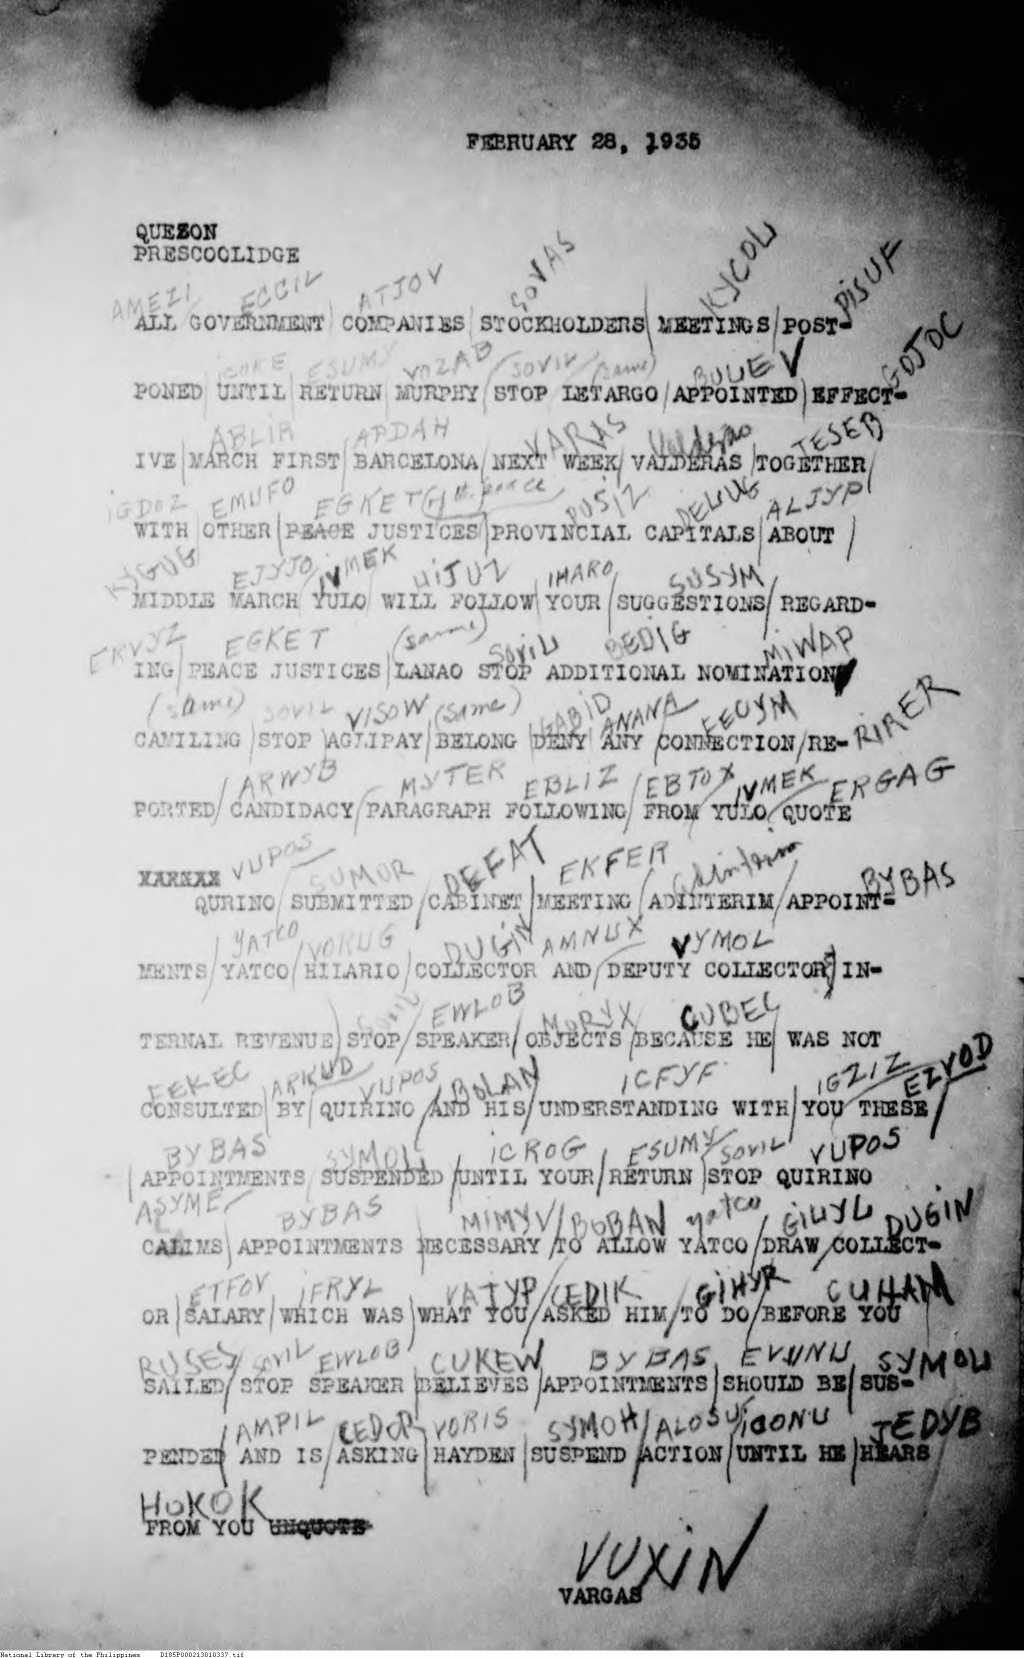 FEBRUARY 28, 1935
QUEZON
PRESCOOLIDGE
AMEZI ECCIL ATJOV SOVAS KYCOL PISUF
ALL GOVERNMENT COMPANIES STOCKHOLDERS MEETINGS POST-
ESUMY VOZAB SOVIL (same) GOJDC
PONED UNTIL RETURN MURPHY STOP LETARGO APPOINTED EFFECT-
ABLIR APDAH VARAS Valderas JESEB
IVE MARCH FIRST BARCELONA NEXT WEEK VALDERAS TOGETHER
IGDOZ EMUFO EGKET PUSIZ ALJYP
WITH OTHER PEACE JUSTICES PROVINCIAL CAPITALS ABOUT
KYGUG EJYJO IVMEK UIJUZ IMARO SUSYM
MIDDLE MARCH YULO WILL FOLLOW YOUR SUGGESTIONS REGARD-
ERVYZ EGKET (same) SOVIL BEDIG MIWAP
ING PEACE JUSTICES LANAO STOP ADDITIONAL NOMINATION
(same) SOVIL VISOW (same) GABID ANANA EECYM RIRER
CAMILING STOP AGLIPAY BELONG DENY ANY CONNECTION RE-
ARWYB MYTER EBLIZ EBTOX IVMEK ERGAG
PORTED CANDIDACY PARAGRAPH FOLLOWING FROM YULO QUOTE
XXXXXX VUPOS SUMOR DEFAT EKFER BYBAS
QURINO SUBMITTED CABINET MEETING ADINTERIM APPOINT-
YATCO VORUG DUGIN AMNUX VYMOL
MENTS YATCO HILARIO COLLECTOR AND DEPUTY COLLECTOR IN-
SOVIL EWLOB MORYX CUBEC
TERNAL REVENUE STOP SPEAKER OBJECTS BECAUSE HE WAS NOT
EEKEC ARKUD VUPOS BOLAN ICFYF IGZIZ EZVOD
CONSULTED BY QUIRINO AND HIS UNDERSTANDING WITH YOU THESE
BYBAS SYMOL ICROG ESUMY SOVIL VUPOS
APPOINTMENTS SUSPENDED UNTIL YOUR RETURN STOP QUIRINO
ASYME BYBAS MIMYV BOBAN Yatco GILYL DUGIN
CALIMS APPOINTMENTS NECESSARY TO ALLOW YATCO DRAW COLLECT-
ETFOV IFRYL VATYP CEDIK GIHYR CUHAM
OR SALARY WHICH WAS WHAT YOU ASKED HIM TO DO BEFORE YOU
RUSES SOVIL EWLOB CUKEW BYBAS EVUNU SYMOL
SAILED STOP SPEAKER BELIEVES APPOINTMENTS SHOULD BE SUS-
AMPIL CEDOP VORIS SYMOH ALOSU ICONU JEDYB
PENDED AND IS ASKING HAYDEN SUSPEND ACTION UNTIL HE HEARS
HOKOK
FROM YOU UNQUOTE
VUXIN
VARGAS
National Library of the Philippines D185P000213010337.tif